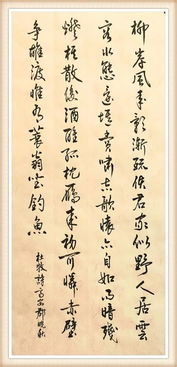 柳岸風來影漸疏使君家似野人居雲
容水態還堪賞嘯志歌懷亦自如雨暗殘
燈棋散後酒醒孤枕雁來初可憐赤壁
爭雄渡惟有蓑翁坐釣魚
杜牧詩齊安郡晚秋